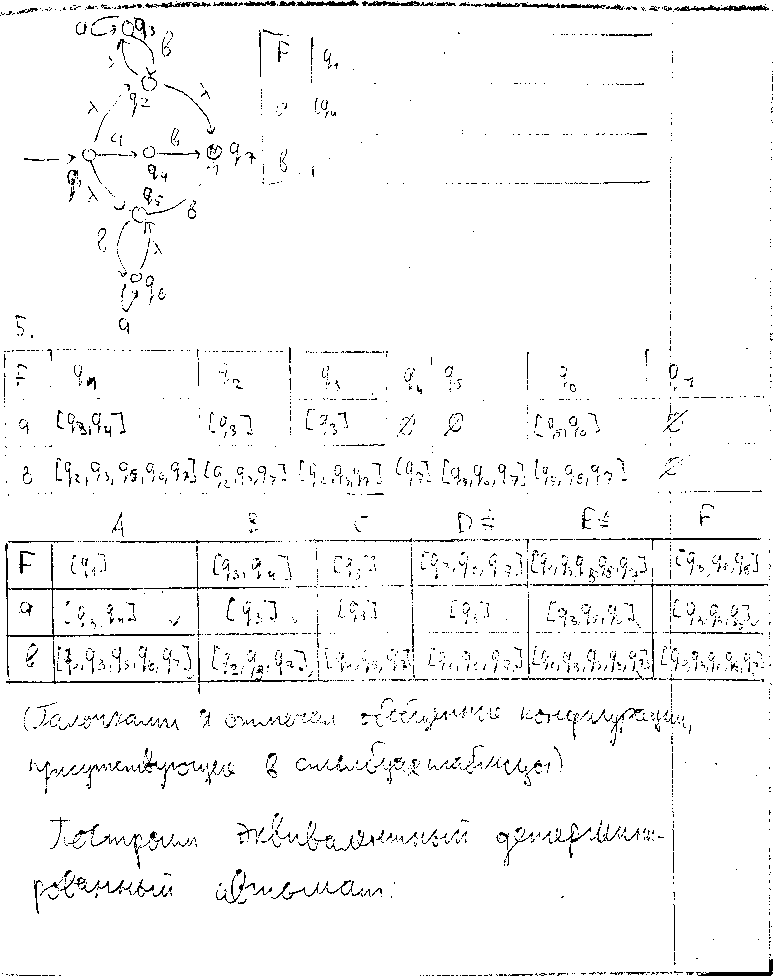 a q3
λ в
q2
λ λ
a в
q1 q4 q7
λ q5 в
в λ
q6
a
F q1
a
в
5.
F q1 q2 q3 q4 q5 q6 q7
a [q3,q4] [q3] [q3] ∅ ∅ [q5,q6] ∅
в [q2,q3,q5,q6,q7] [q2,q3,q7] [q2,q3,q7] [q7] [q5,q6,q7] [q5,q6,q7] ∅
A B C D E F
F [q1] [q3,q4] [q3] [q2,q3,q7] [q3,q5,q6]
a [q3,q4] [q3] [q3] [q3] [q3,q5,q6] [q3,q5,q6]
в [q2,q3,q5,q6,q7] [q2,q3,q7] [q2,q3,q7] [q2,q3,q7] [q2,q3,q5,q6,q7] [q2,q3,q5,q6,q7]
(Галочками я отмечал обобщённые конфигурации,
присутствующие в столбцах таблицы)
Построим эквивалентный детермини-
рованный автомат: